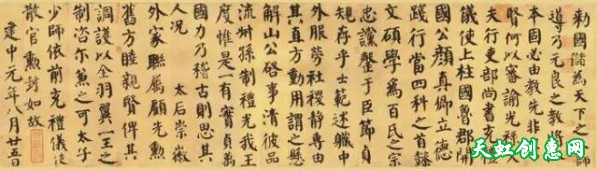 敕國儲為天下之本師
導乃元良之教將以
本固必由教先非求忠
賢何以審諭光祿大
夫行吏部尚書充禮
儀使上柱國魯郡開
國公顏真卿立德
踐行當四科之首懿
文碩學為百氏之宗
忠讜罄于臣節貞
規存乎士範述職中
外服勞社稷靜專由
其直方動用謂之懸
解山公啓事清彼品
流叔孫制禮光我王
度惟是一有實貞萬
國力乃稽古則思其
人況 太后崇徽
外家聯屬顧先勳
舊方睦親賢俾其
調護以全羽翼一王之
制咨尔兼之可太子
少師依前充禮儀使
散官勳封如故
建中元年八月廿五日
天虹创惠网